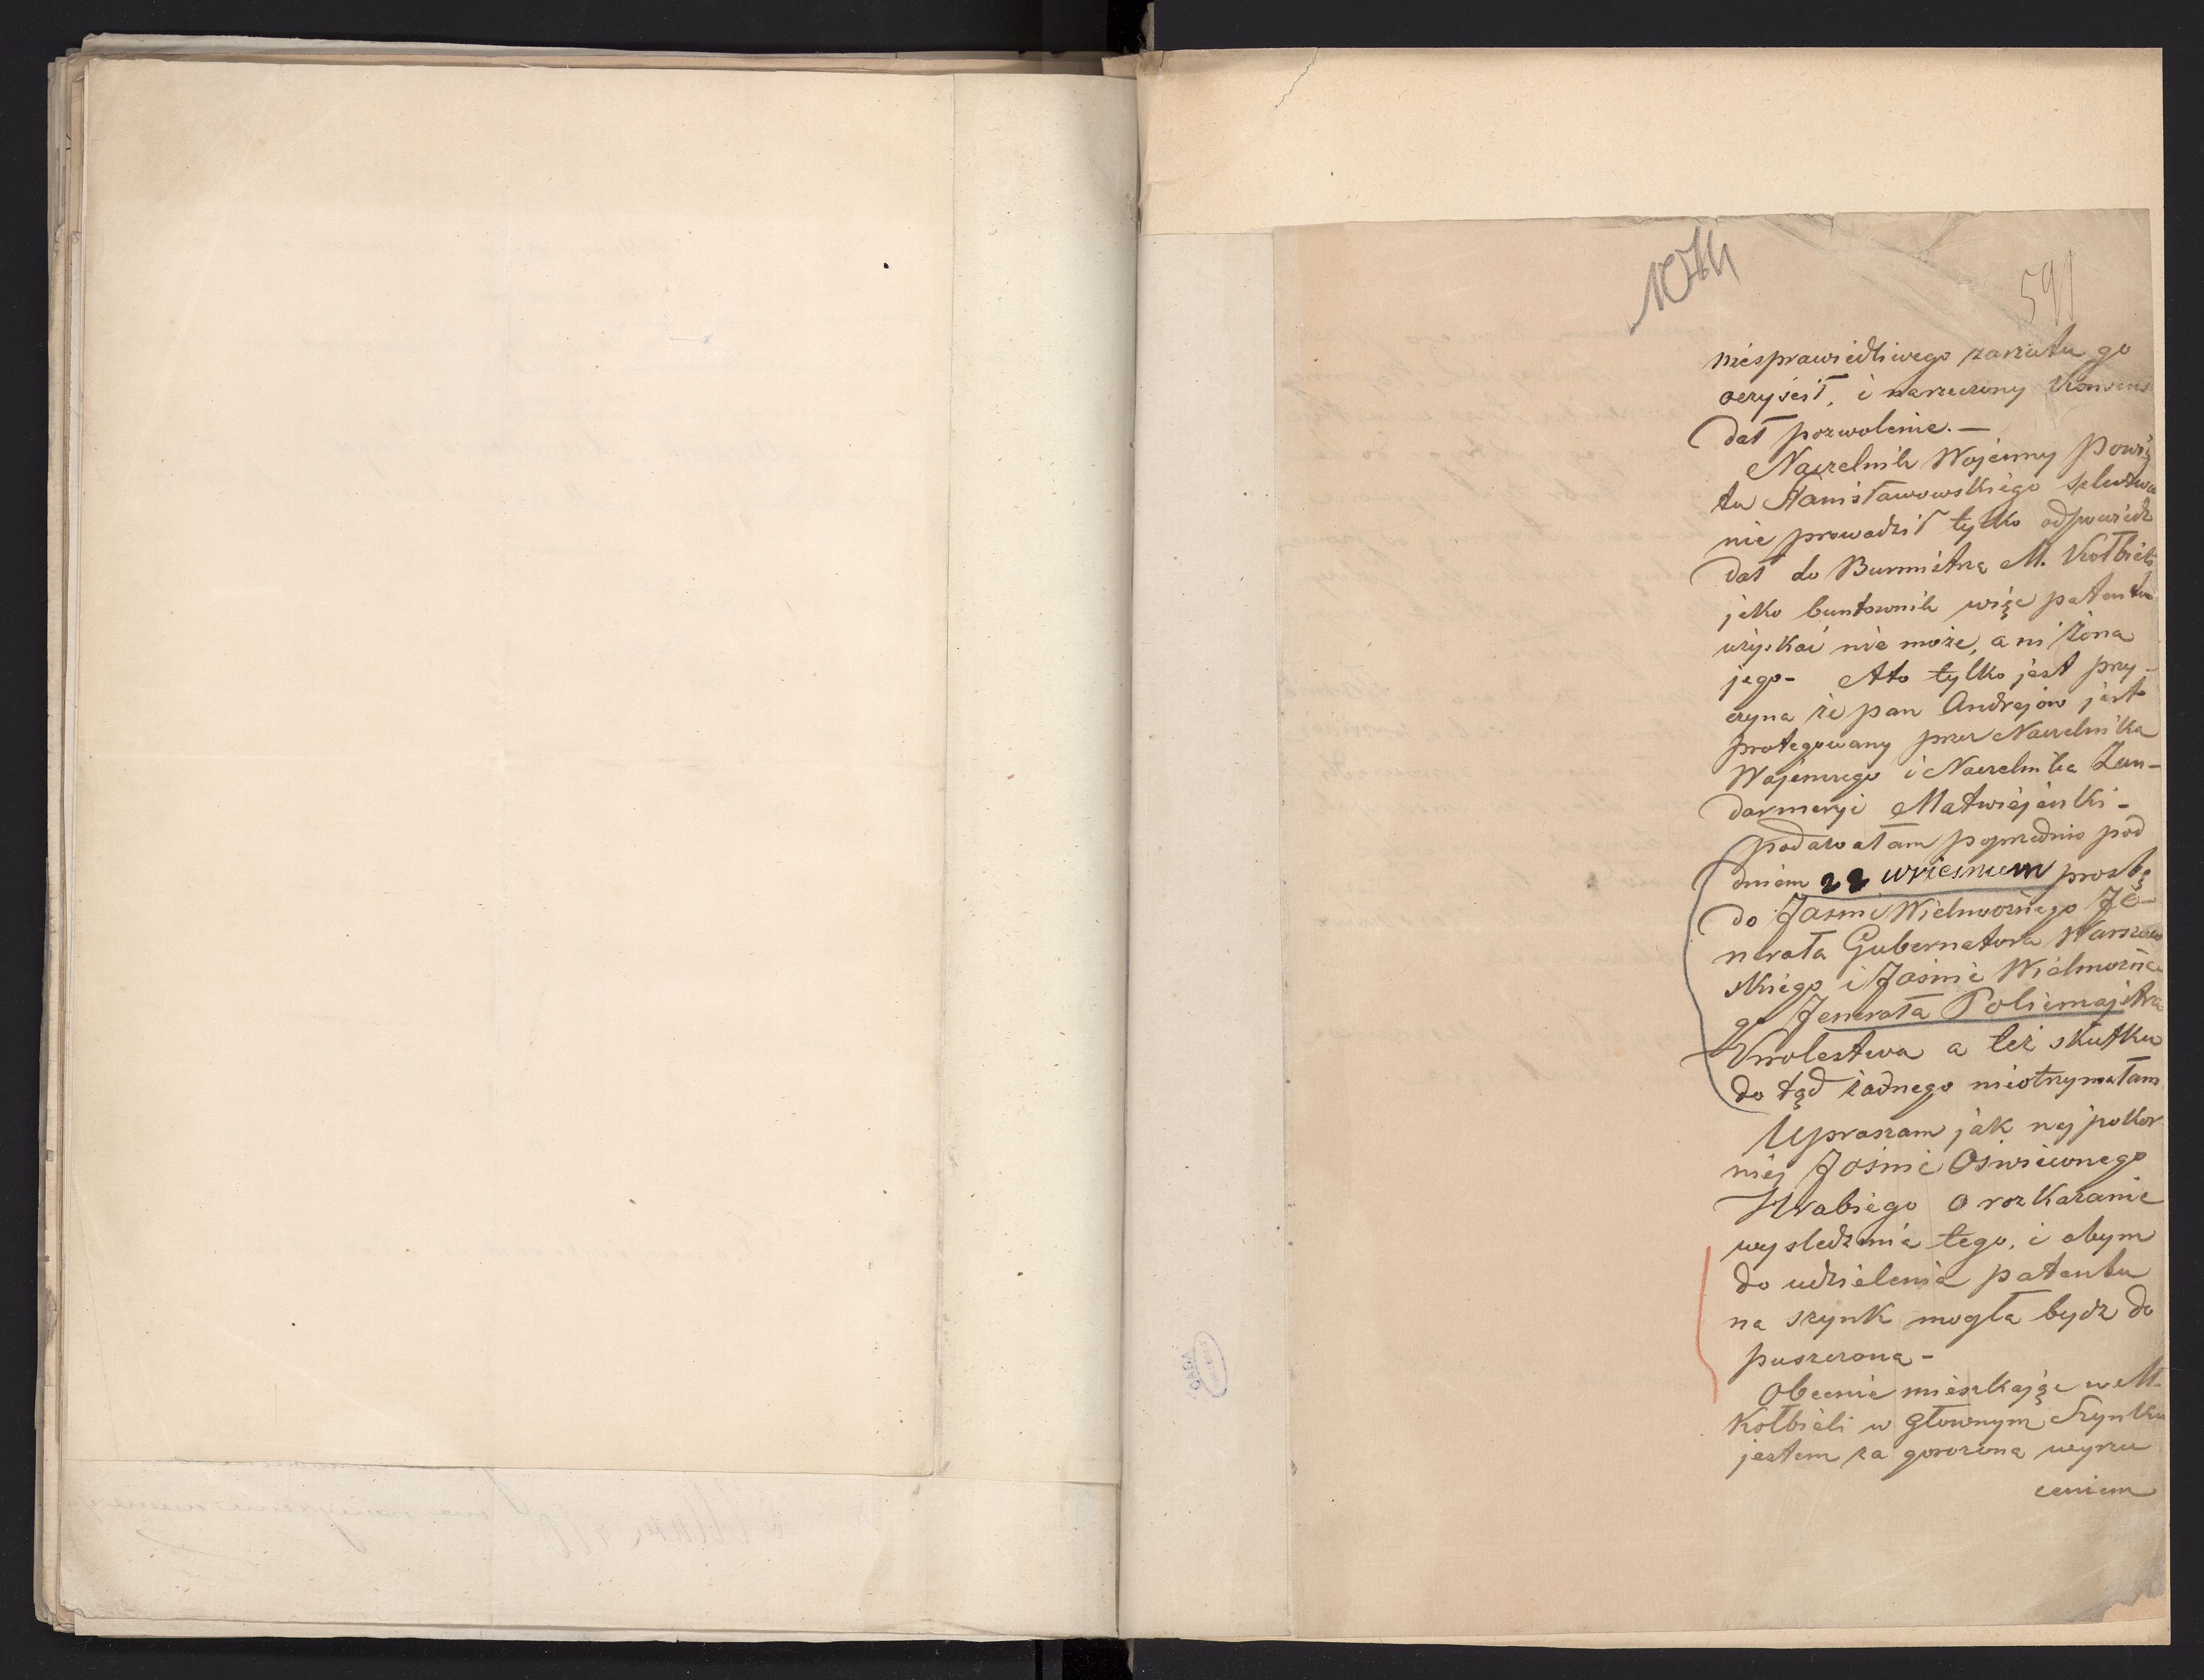 591
niesprawiedliwego zarzutu go
oczyścił, i narzeczony Konsens
dał pozwolenie.—
Naczelnik Wojenny Powia
tu Stanisławowskiego śledztwa
nie prowadził tylko odpowiedź
dał do Burmistrza M. Kołbieli
jako buntownik więc patentu
uzyskać nie może, ani żona
jego- Ato tylko jest przy-
czyna że pan Andrejow jest
protegowany przez Naczelnika
Wojennego i Naczelnika Żan-
darmeryi Matwiejenki-
podawałam poprzednio pod
dniem 22 wrzesniem prośbę
do Jaśnie Wielmożnego Je-
nerała Gubernatora Warszaw
skiego i Jaśnie Wielmożne
go Jenerała Policmajstra
Krolestwa a też skutku
do tąd żadnego nieotrzymałam
Upraszam jak naj pokor
niej Jaśnie Oświeconego
Hrabiego o rozkazanie
wysledzenia tego, i abym
do udzielenia patentu
na szynk mogła bydz do
puszczona-
Obecnie mieszkając w M.
Kołbieli w głownym Szynku
jestem za grozona wyrzu
ceniem